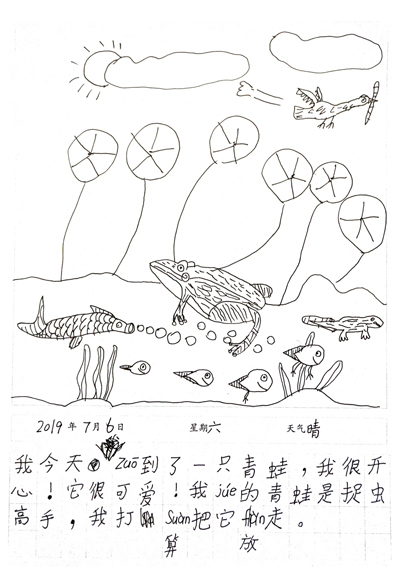 2019年7月6日 星期六 天气晴
我今天zuō到了一只青蛙，我很开
心！它很可爱！我júe的青蛙是捉虫
高手，我打suàn把它走。
算 放